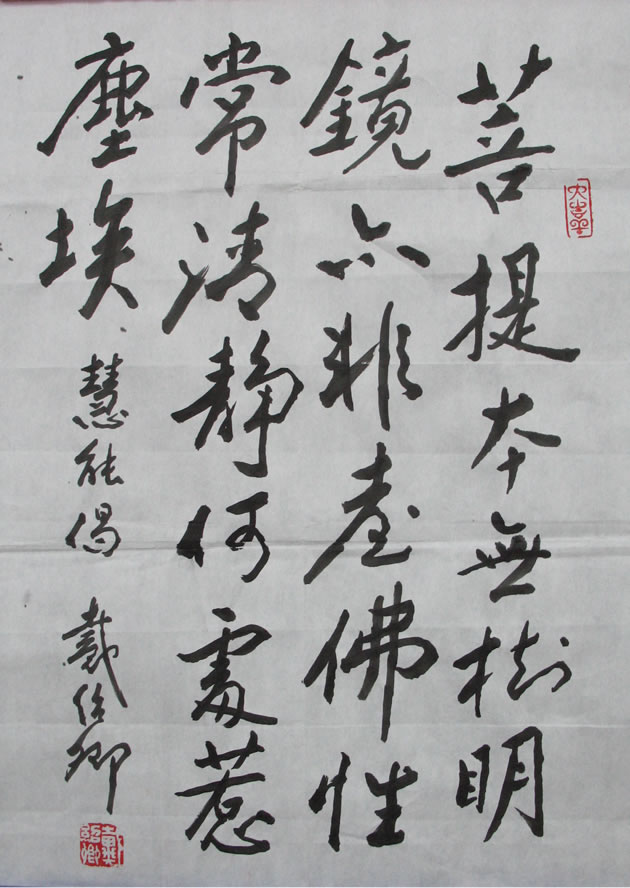 菩提本無樹明
鏡亦非臺佛性
常清静何處惹
塵埃
慧能偈 戴紹卿
戴紹卿